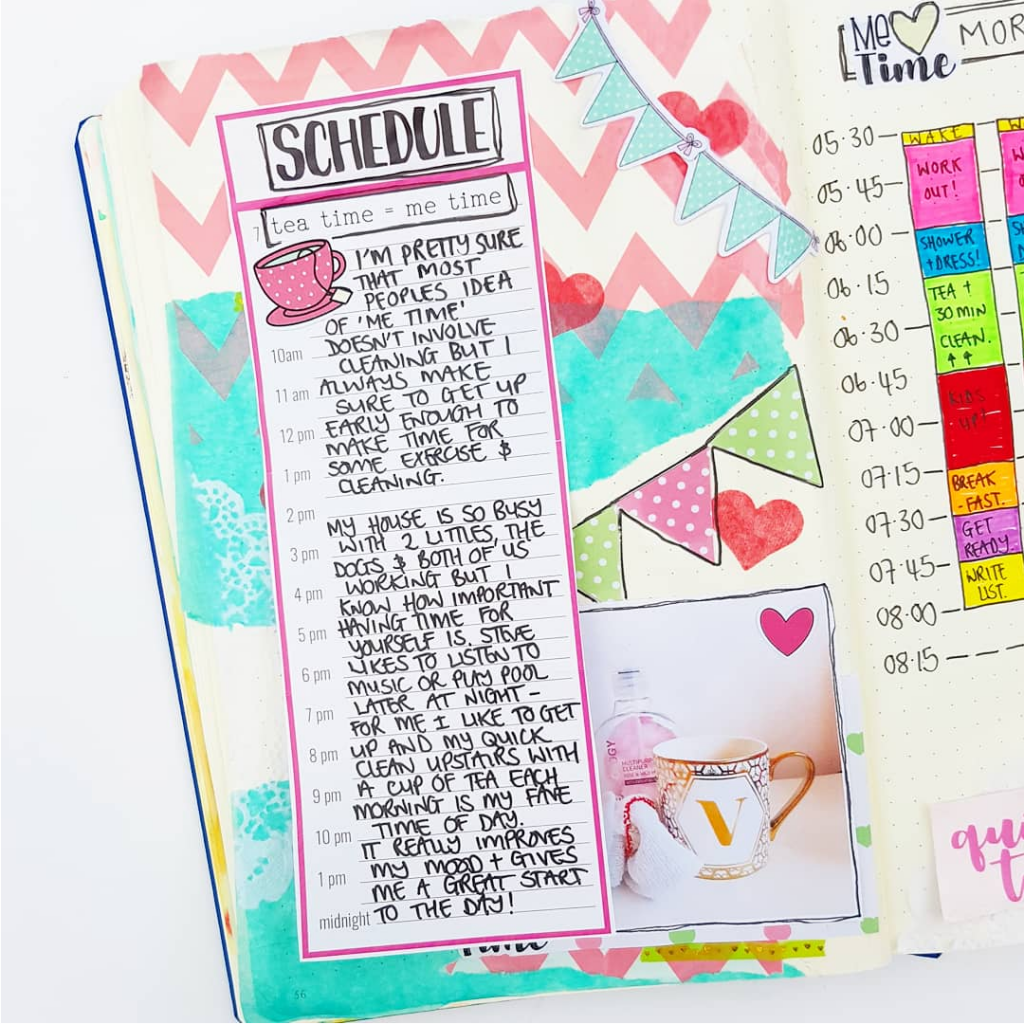 SCHEDULE
tea time = me time
7
I'M PRETTY SURE
THAT MOST
PEOPLES IDEA
OF 'ME TIME'
DOESN'T INVOLVE
CLEANING BUT I
ALWAYS MAKE
SURE TO GET UP
EARLY ENOUGH TO
MAKE TIME FOR
SOME EXERCISE &
CLEANING.
MY HOUSE IS SO BUSY
WITH 2 LITTLES, THE
DOGS & BOTH OF US
WORKING BUT I
KNOW HOW IMPORTANT
HAVING TIME FOR
YOURSELF IS. STEVE
LIKES TO LISTEN TO
MUSIC OR PLAY POOL
LATER AT NIGHT -
FOR ME I LIKE TO GET
UP AND MY QUICK
CLEAN UPSTAIRS WITH
A CUP OF TEA EACH
MORNING IS MY FAVE
TIME OF DAY.
IT REALLY IMPROVES
MY MOOD + GIVES
ME A GREAT START
TO THE DAY!
10am
11 am
12 pm
1 pm
2 pm
3 pm
4 pm
5 pm
6 pm
7 pm
8 pm
9 pm
10 pm
1 pm
midnight
V
Time
56
Me
Time
MOR
05.30
05.45
06.00
06.15
06.30
06.45
07.00
07.15
07.30
07.45
08.00
08.15
WAKE
WORK
OUT!
SHOWER
+DRESS!
TEA +
30 MIN
CLEAN.
↑ ↑
KIDS
UP!
BREAK
-FAST.
GET
READY.
WRITE
LIST.
qu
t